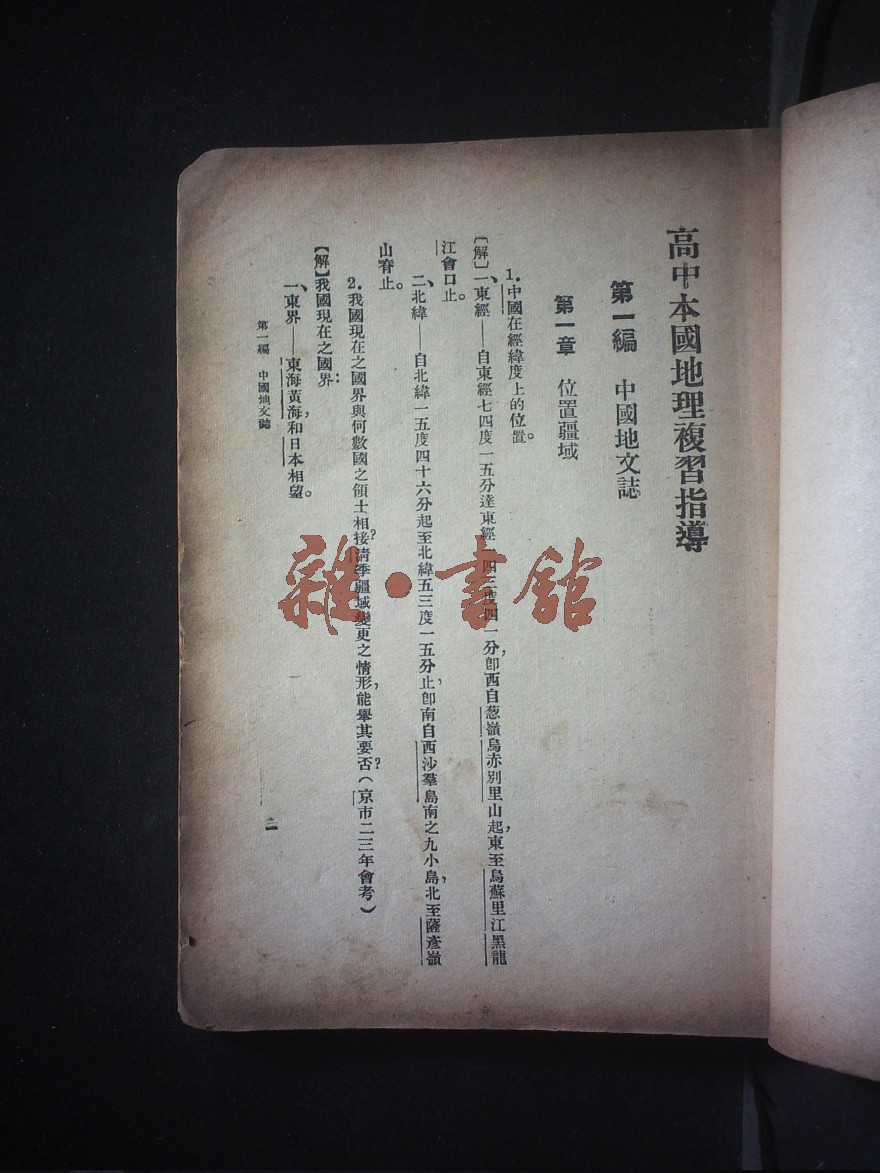 高中本國地理複習指導
第一編　中國地文誌
第一章　位置疆域
1.中國在經緯度上的位置。
〔解〕一、東經——自東經七四度一五分達東經一四三度四一分，卽西自葱嶺烏赤別里山起，東至烏蘇里江黑龍
江會口止。
二、北緯——自北緯一五度四十六分起至北緯五三度一五分止，卽南自西沙羣島南之九小島，北至薩彥嶺
山脊止。
2.我國現在之國界與何數國之領土相接？清季疆域變更之情形，能舉其要否？（京市二三年會考）
【解】我國現在之國界：
一、東界——東海黃海，和日本相望。
第一編　中國地文誌
雜·書館